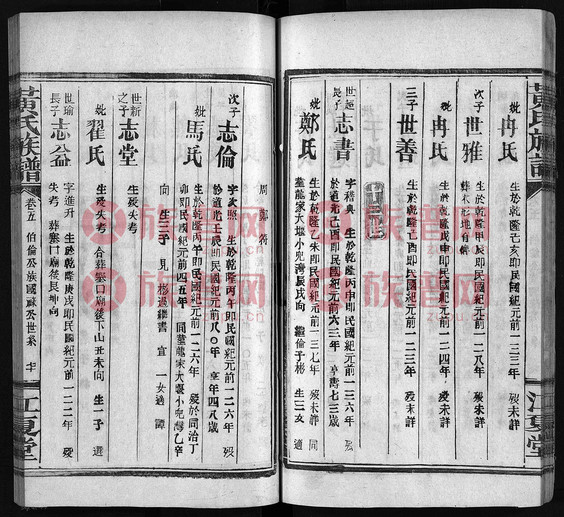 黃氏族譜
江夏堂
妣 冉氏 生於乾隆己亥即民國紀元前一三三年 歿未詳
次子 世雅 生於乾隆甲辰即民國紀元前一二八年 歿未詳
葬木杉地有碑
妣 冉氏 生於乾隆戊申即民國紀元前一二四年 歿未詳
三子 世善 生於乾隆己酉即民國紀元前一二三年 歿未詳
長子 志書 字稽典 生於乾隆丙申即民國紀元前一三六年
於道光己酉即民國紀元前六三年 享壽七三歲
妣 鄭氏 生於乾隆乙未即民國紀元前一三七年 歿未詳 同
葬龍家大堰小兒灣辰戌向 繼倫子彬 生三女 適
周 鄭 符
次子 志倫 字次照 生於乾隆丙午即民國紀元前一二六年 歿
於道光壬辰即民國紀元前八〇年 享年四八歲
妣 馬氏 生於乾隆丙午即民國紀元前一二六年 歿於同治丁
卯即民國紀元前四五年 同葬龍家大堰小兒灣乙辛
向 生三子 見 彬過繼書 宣 一女適 譚
世新之子 志堂 生歿失考
妣 翟氏 生歿失考 合葬寨口廟後下山丑未向 生一子 選
世瑜長子 志益 字進升 生於乾隆庚戌即民國紀元前一二二年 歿
失考 葬寨口廟後艮坤向
黃氏族譜 卷五 伯倫公族國祿公世系
江夏堂
族譜网
zupu.cn